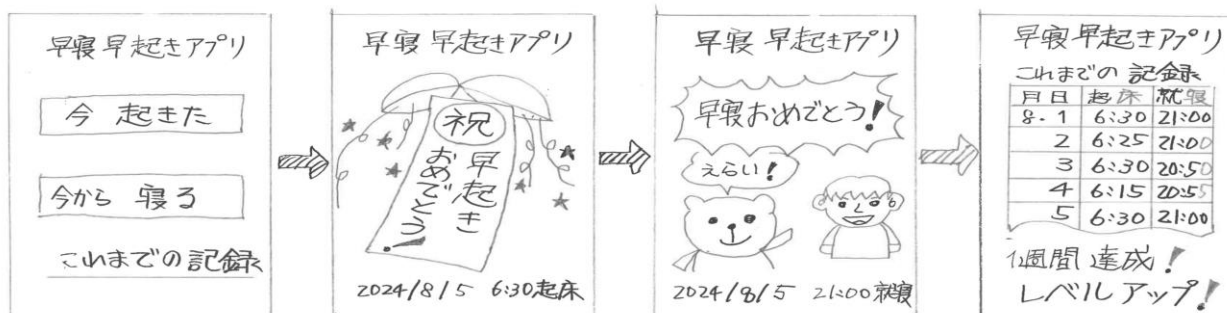 早寝早起きアプリ
今起きた
今から寝る
これまでの記録
早寝早起きアプリ
祝
早起き
おめでとう!
2024/8/5 6:30起床
早寝早起きアプリ
早寝おめでとう!
えらい!
2024/8/5 21:00就寝
早寝早起きアプリ
これまでの記録
月日 起床 就寝
8.1 6:30 21:00
2 6:25 21:00
3 6:30 20:50
4 6:15 20:55
5 6:30 21:00
1週間達成!
レベルアップ!